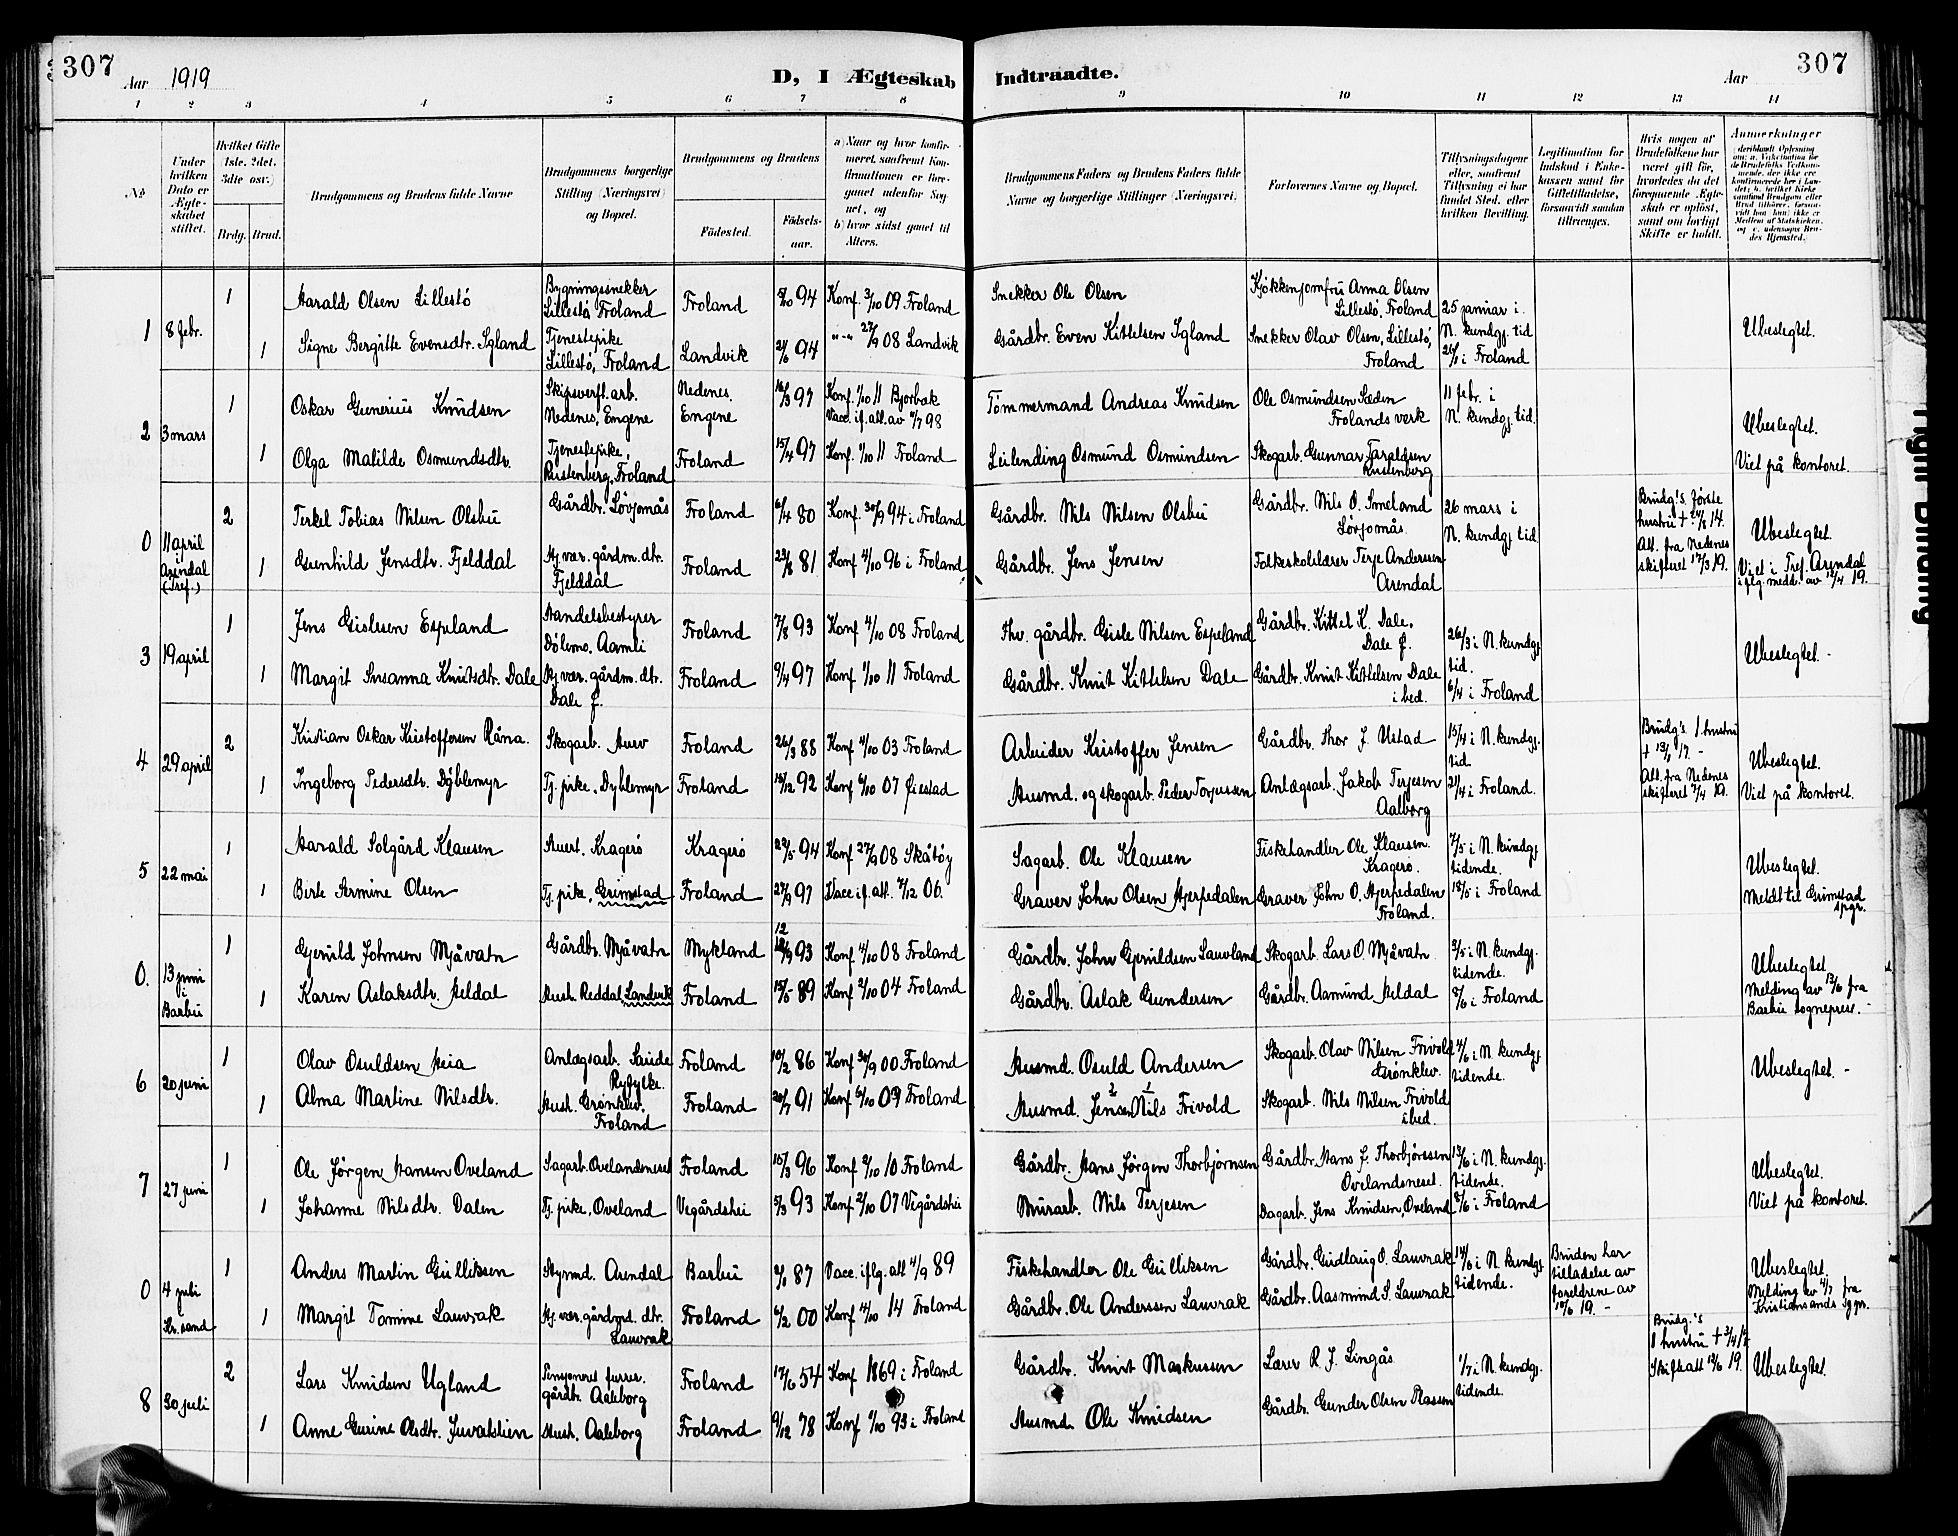 307
Aar 1919
D, I Ægteskab Indtraadte.
Aar
307
1 2 3 4 5 6 7 8 9 10 11 12 13 14
№
Under hvilken Dato er Ægteskabet stiftet.
Hvilket Gifte 1ste. 2det. 3dte osv.)
Brdg. Brud.
Brudgommens og Brudens fulde Navne
Brudgommens borgerlige Stilling (Næringsvei) og Bopæl.
Brudgommens og Brudens
Fødested.
Fødselsaar.
a) Naar og hvor konfirmeret, saafremt Konfirmationen er foregaaet udenfor Sognet, og
b) hvor sidst gaaet til Alters.
Brudgommens Faders og Brudens Faders fulde Navne og borgerlige Stillinger (Næringsvei).
Forlovernes Navne og Bopæl.
Tillysningsdagene eller, saafremt Tillysning ei har fundet Sted, efter hvilken Bevilling.
Legitimation for Indskud i Enkekassen samt for Giftetilladelse, forsaavidt saadan tiltrænges.
Hvis nogen af Brudefolkene har været gift før, hvorledes da det foregaaende Ægteskab er opløst, samt om lovligt Skifte er holdt.
Anmerkninger
1 8 febr.
1 Harald Olsen Lillestø
Bygningssnekker Lillestø, Froland
Froland 5/10 94 Konf. 3/10 09 Froland
Snekker Ole Olsen
Kjøkkenjomfru Anna Olsen Lillestø, Froland
25 januar i N. kundgj. tid
26/1 i Froland
1 Signe Bergitte Evensdtr. Igland
Tjenestepike Lillestø, Froland
Landvik 21/6 94 " " 27/9 08 Landvik
Gårdbr. Even Kittelsen Igland
Snekker Olav Olsen, Lillestø, Froland
Ubeslegtet.
2 3 mars
1 Oskar Gunerius Knudsen
Skipsverft. arb. Nedenes, Engene
Nedenes. Engene 16/3 97 Konf. 1/10 11 Bjorbæk
Vacc. if. att. av 4/7 98
Tømmermand Andreas Knudsen
Ole Osmundsen Sæden Frolands verk
11 febr. i N. kundgj. tid.
1 Olga Matilde Osmundsdtr.
Tjenestepike, Ristenberg, Froland
Froland 15/4 97 Konf. 1/10 11 Froland
Leilending Osmund Osmundsen
Skogarb. Gunnar Taraldsen Rustenberg
Ubeslegtet.
Viet på kontoret.
0 11 april i Arendal (Tref.)
2 Terkel Tobias Nilsen Olsbu
Gårdbr. Løvjomås
Froland 6/4 80 Konf. 30/9 94 i Froland
Gårdbr. Nils Nilsen Olsbu
Gårdbr. Nils O. Smeland Løvjomås
26 mars i N. kundgj. tid
Brudg.'s første hustru † 24/6 14.
Att. fra Nedenes skifteret 17/3 19.
1 Gunhild Jensdtr. Fjelddal
Hj. vær. gårdm. dtr. Fjelddal
Froland 22/8 81 Konf 4/10 96 i Froland
Gårdbr. Jens Jensen
Folkeskolelærer Terje Anderssen Arendal
Ubeslegtet.
Viet i Tref. Arendal iflg. medd. av 12/4 19.
3 19 april
1 Jens Gislesen Espeland
Handelsbestyrer Dølemo. Aamli
Froland 7/8 93 Konf 4/10 08 Froland
Fhv. gårdbr. Gisle Nilsen Espeland
Gårdbr. Kittel K. Dale, Dale f.
26/3 i N. kundgj. tid.
6/4 i Froland
1 Margit Susanna Knutsdtr. Dale
Hj. vær. gårdm. dtr. Dale f.
Froland 9/4 97 Konf 1/10 11 Froland
Gårdbr. Knut Kittelsen Dale
Gårdbr. Knut Kittelsen Dale i bed.
Ubeslegtet.
4 29 april
2 Kristian Oskar Kristoffersen Råna.
Skogarb. Hurv
Froland 26/3 88 Konf 4/10 03 Froland
Arbeider Kristoffer Jensen
Gårdbr. Thor J. Ustad
15/4 i N. kundgj. tid.
21/4 i Froland.
Brudg's 1 hustru † 13/1 17.
Att. fra Nedenes skifteret 2/4 19.
1 Ingeborg Pedersdtr. Dyblemyr
Tj. pike, Dyblemyr
Froland 15/12 92 Konf 6/10 07 Øiestad
Husmd. og skogarb. Peder Torjussen
Anlægsarb. Jakob Terjesen Aalborg
Ubeslegtet.
Viet på kontoret.
5 22 mai
1 Harald Solgård Klausen
Stuert. Kragerø
Kragerø 22/5 94 Konf 27/9 08 Skåtøy
Sagarb. Ole Klausen
Fiskehandler Ole Klausen. Kragerø.
7/5 i N. kundgj. tidende.
18/5 i Froland
1 Birte Sermine Olsen
Tj. pike, Grimstad
Froland 27/9 97 Vacc if. att. 7/12 06.
Graver John Olsen Hjerpedalen
Graver John O. Hjerpedalen Froland.
Ubeslegtet.
Meldt til Grimstad spgr.
0. 13 juni i Barbu
1 Gjerulf Johnsen Mjåvatn
Gårdbr. Mjåvatn
Mykland 12/9 93 Konf 4/10 08 Froland
Gårdbr. John Gjerulfsen Lauvland
Skogarb. Lars O. Mjåvatn
3/5 i N. kundgj. tidende.
8/6 i Froland
1 Karen Aslaksdtr. Heldal
Hush. Reddal Landvik
Froland 15/5 89 Konf 2/10 04 Froland
Gårdbr. Aslak Gundersen
Gårdbr. Aamund Heldal
Ubeslegtet
Melding av 13/6 fra Barbu sogneprest.
6 20 juni
1 Olav Osuldsen Heia
Anlægsarb. Saude Ryfylke.
Froland 10/2 86 Konf 30/9 00 Froland
Husmd. Osuld Andersen
Skogarb. Olav Nilsen Frivold Grønklev.
4/6 i N. kundgj. tidende.
1 Alma Martine Nilsdtr.
Hush. Grønklev, Froland
Froland 20/7 91 Konf 6/10 09 Froland
Husmd. Jensen Nils Frivold
Skogarb. Nils Nilsen Frivold i bed.
Ubeslegtet.
7 27 juni
1 Ole Jørgen Hansen Oveland
Sagarb. Ovelandsneset
Froland 15/3 96 Konf 2/10 10 Froland
Gårdbr. Hans Jørgen Thorbjørnsen
Gårdbr. Hans J. Thorbjørnsen Ovelandsneset.
12/6 i N. kundgj. tidende.
8/6 i Froland
1 Johanne Nilsdtr. Dalen
Tj. pike, Oveland
Vegårdshei 5/3 93 Konf 2/10 07 Vegårdshei
Murarb. Nils Terjesen
Dagarb. Jens Knudsen, Oveland
Ubeslegtet.
Viet på kontoret.
0 4 juli Kr.sand
1 Anders Martin Gulliksen
Styrmd. Arendal
Barbu 2/1 87 Vacc. iflg. att 4/9 89
Fiskehandler Ole Gulliksen
Gårdbr. Gudlaug O. Lauvrak
14/6 i N kundgj. tidende.
Bruden har tilladelse av foreldrene av 10/6 19.
1 Margit Tomine Lauvrak
Hj. vær. gårdmd. dtr. Lauvrak
Froland 6/2 00 Konf 4/10 14 Froland
Gårdbr. Ole Anderssen Lauvrak
Gårdbr. Aasmund S. Lauvrak
Ubeslegtet.
Melding av 4/7 fra Kristiansands sgpr.
8 30 juli
2 Lars Knudsen Ugland
Pensjonert furer. gårdbr. Aaleborg
Froland 17/6 54 Konf 1869 i Froland
Gårdbr. Knut Markussen
Lærer R. J. Lingås
1/7 i N. kundgj. tidende.
Brudg.'s 1 hustru † 3/4 17
Skifteatt 13/6 19.
1 Anne Gurine Olsdtr. Juvatslien
Hush. Aaleborg
Froland 9/12 78 Konf 1/10 93 i Froland
Husmd. Ole Knudsen
Gårdbr. Gunder Olsen Plassen
Ubeslegtet.